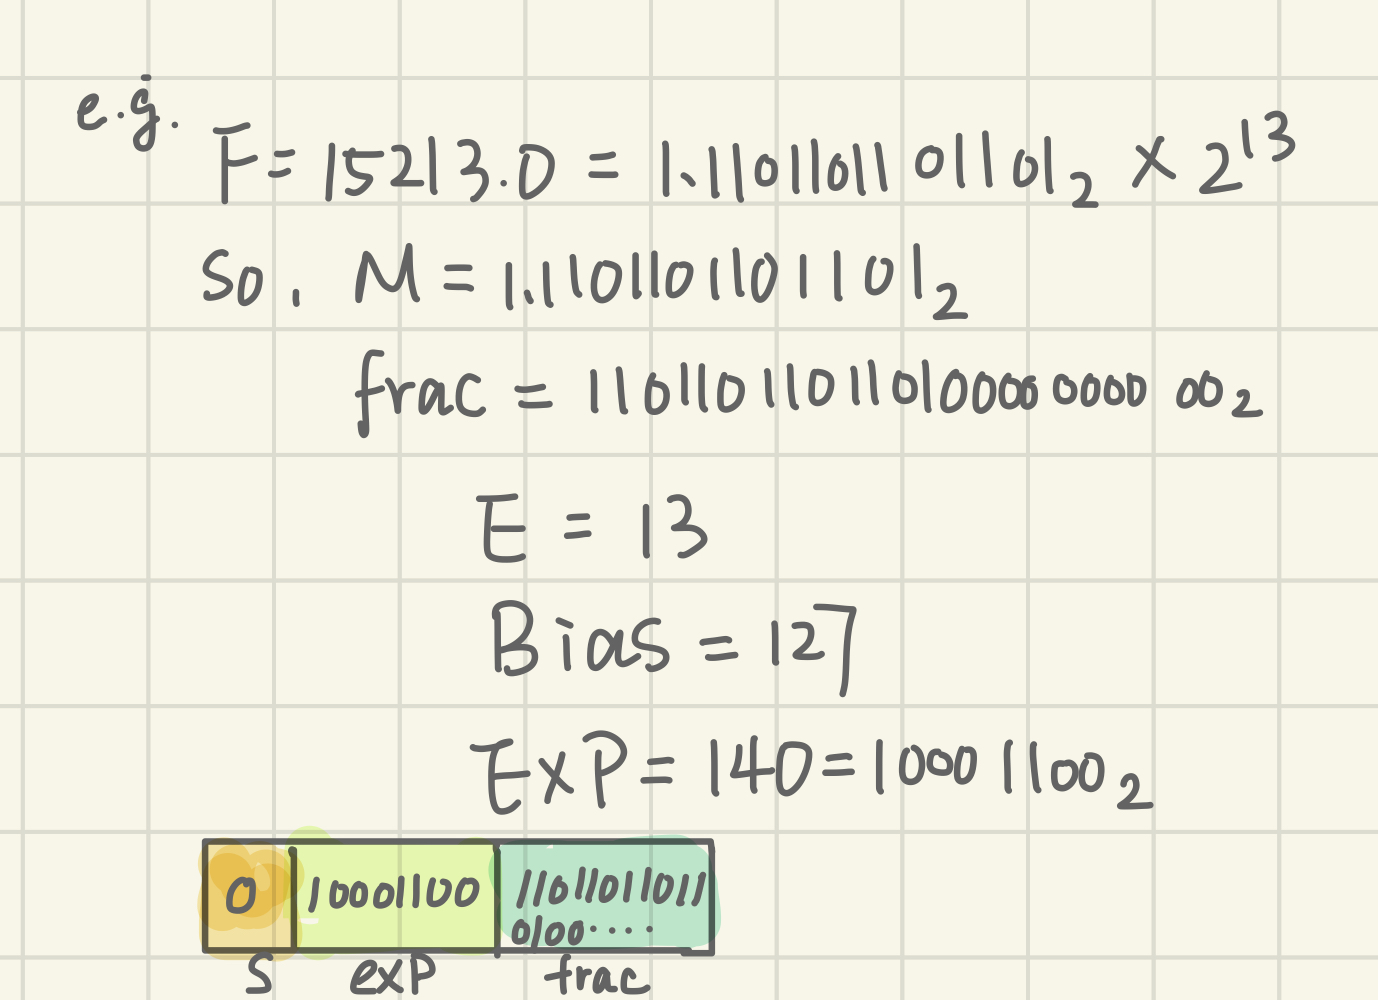 e.g.
F = 15213.0 = 1.1101101101101₂ × 2¹³
So, M = 1.1101101101101₂
frac = 110110 110 11010000 0000 00₂
E = 13
Bias = 127
Exp = 140 = 1000 1100₂
0 10001100 11011011011
0100....
S exp frac